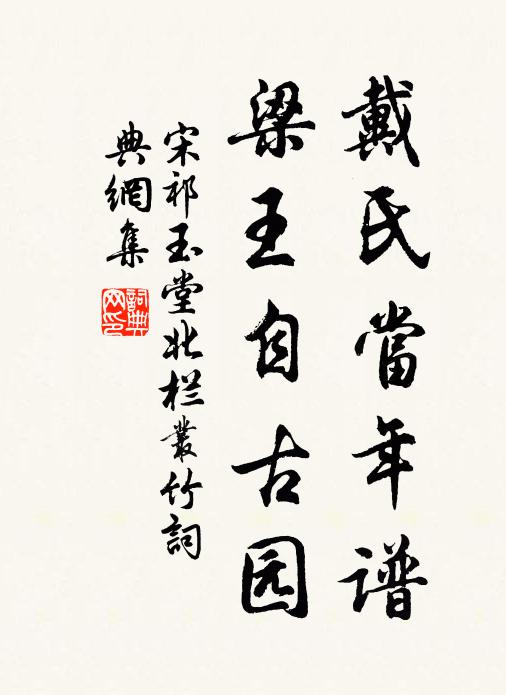 戴氏當年谱
梁王自古园
宋祁玉堂北栏叢竹詞
典網集
詞典网印